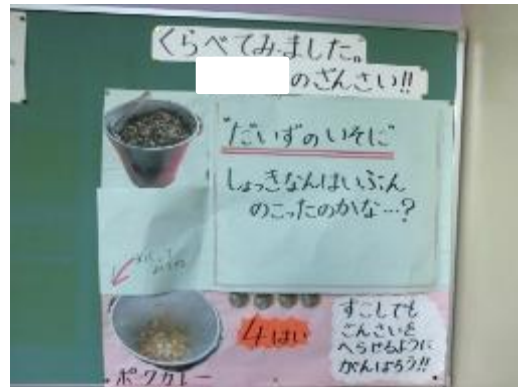 くらべてみました。
のざんさい!!
"だいずのいそに"
しょっきなんはいぶん
のこったのかな…?
4はい
すこしでも
ざんさいを
へらせるように
がんばろう!!
ポークカレー